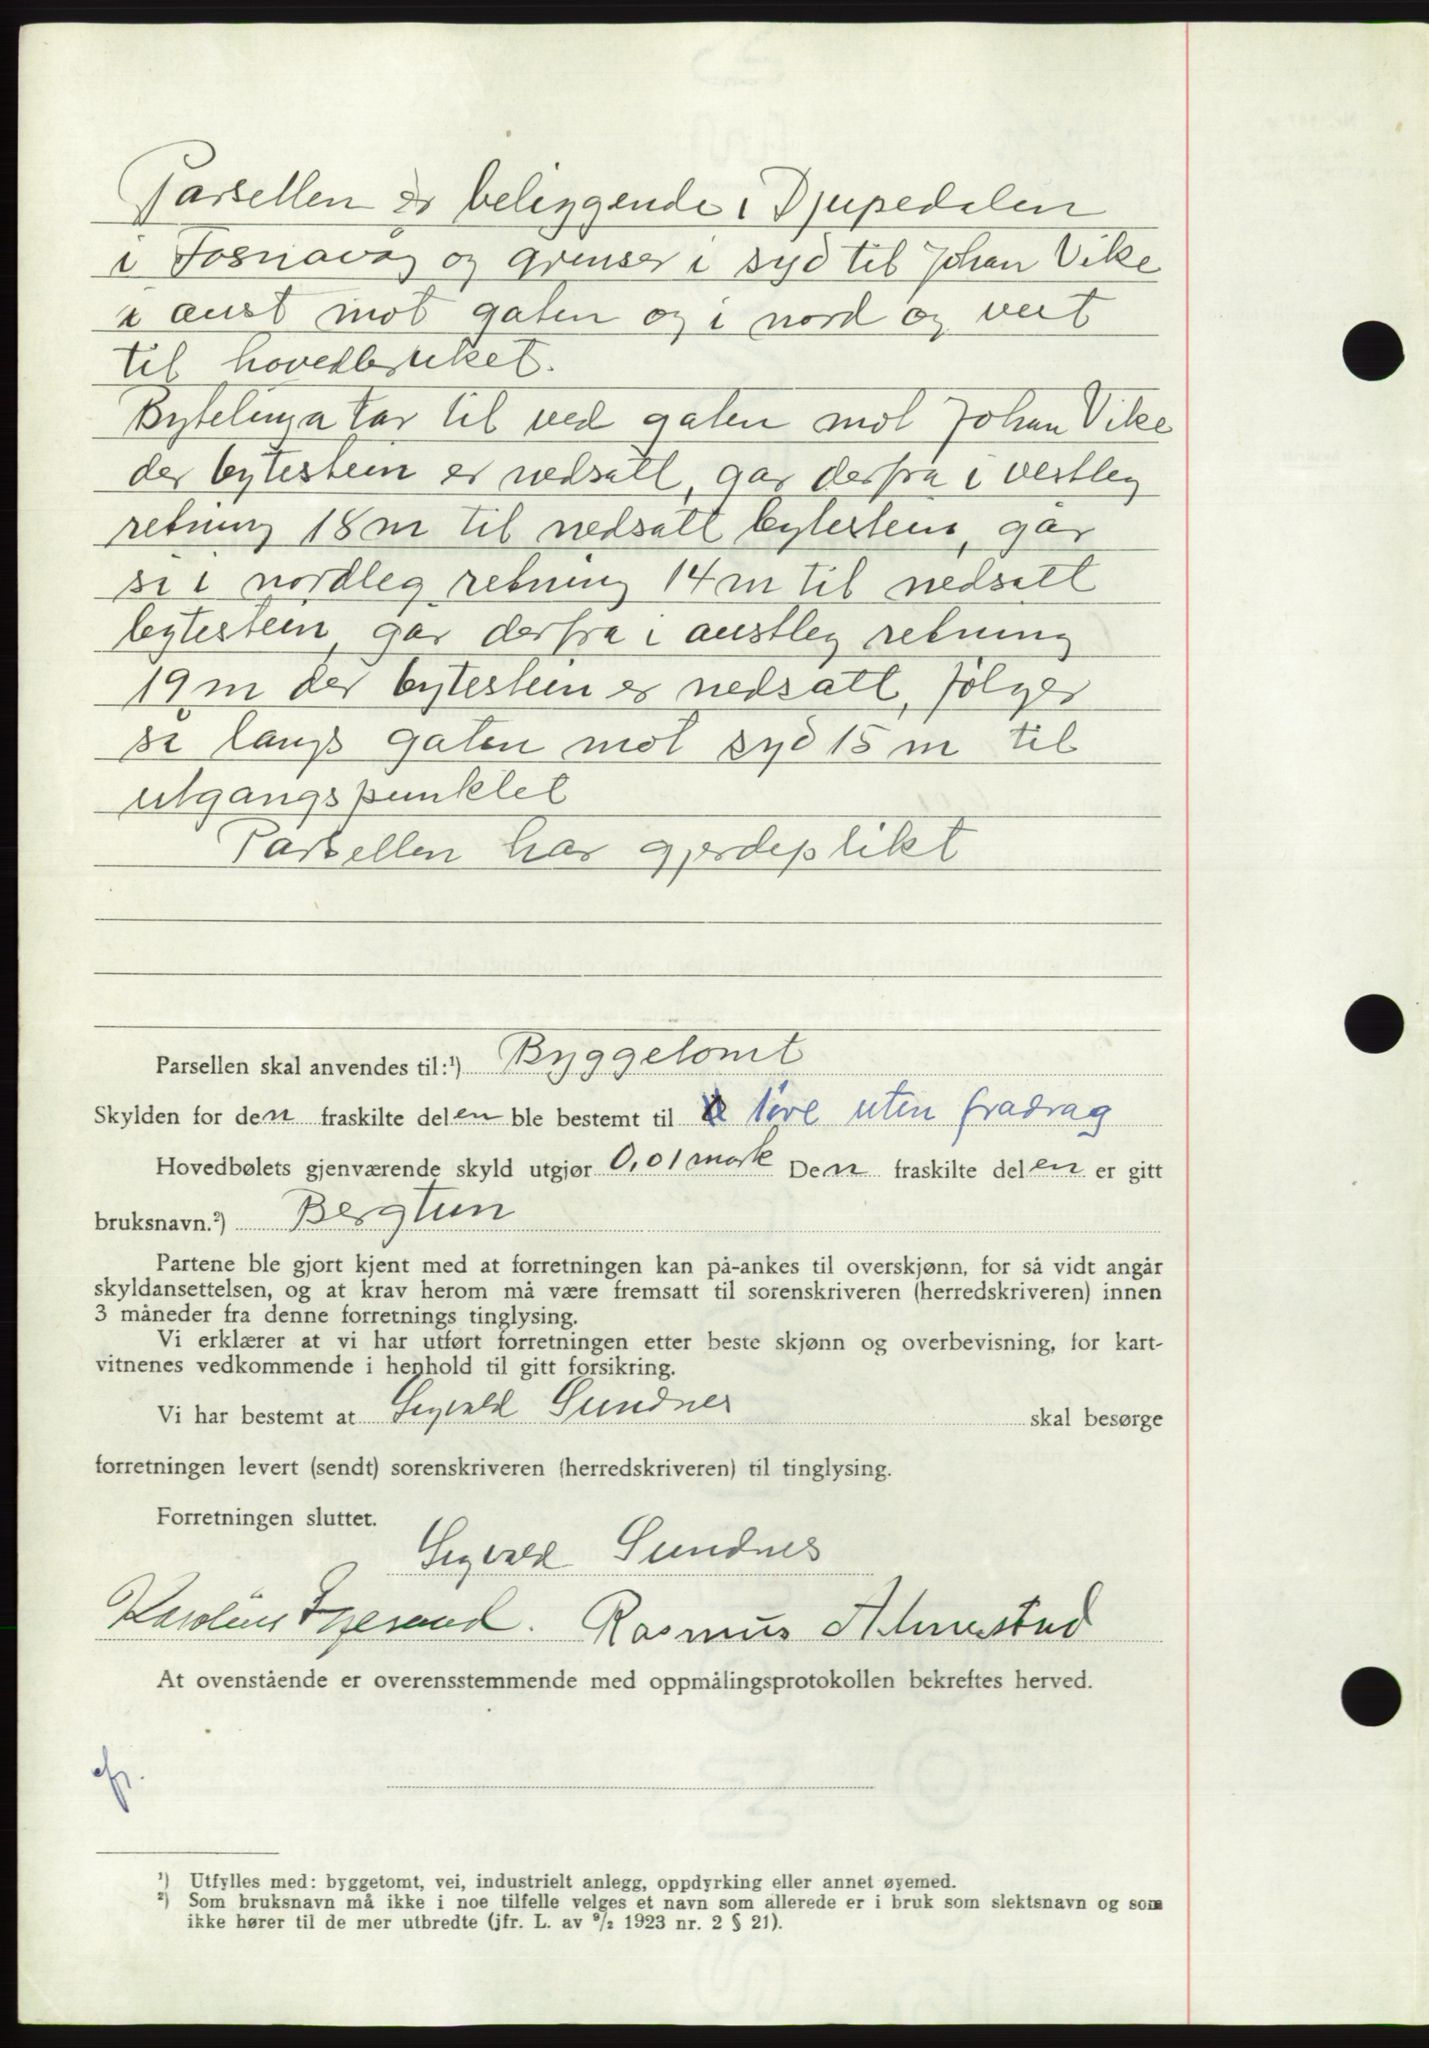 Parsellen er beliggende i Djupedalen
i Fosnavåg og grenser i syd til Johan Vike
i aust mot gaten og i nord og vest
til hovedbruket.
Bytelinja tar til ved gaten mot Johan Vike
der bytestein er nedsatt, gar derfra i vestleg
retning 18 m til nedsatt bytestein, går
så i nordleg retning 14 m til nedsatt
bytestein, går derfra i austleg retning
19 m der bytestein er nedsatt, følger
så langs gaten mot syd 15 m til
utgangspunktet
Parsellen har gjerdeplikt
Parsellen skal anvendes til:¹) Byggetomt
Skylden for den fraskilte delen ble bestemt til 1 øre uten fradrag
Hovedbølets gjenværende skyld utgjør 0,01 mark Den fraskilte delen er gitt
bruksnavn.²) Bergtun
Partene ble gjort kjent med at forretningen kan på-ankes til overskjønn, for så vidt angår
skyldansettelsen, og at krav herom må være fremsatt til sorenskriveren (herredskriveren) innen
3 måneder fra denne forretnings tinglysing.
Vi erklærer at vi har utført forretningen etter beste skjønn og overbevisning, for kart-
vitnenes vedkommende i henhold til gitt forsikring.
Vi har bestemt at Sigvald Sundnes skal besørge
forretningen levert (sendt) sorenskriveren (herredskriveren) til tinglysing.
Forretningen sluttet.
Sigvald Sundnes
Rasmus Almestad
At ovenstående er overensstemmende med oppmålingsprotokollen bekreftes herved.
¹) Utfylles med: byggetomt, vei, industrielt anlegg, oppdyrking eller annet øyemed.
²) Som bruksnavn må ikke i noe tilfelle velges et navn som allerede er i bruk som slektsnavn og som
ikke hører til de mer utbredte (jfr. L. av ⁹/₂ 1923 nr. 2 § 21).